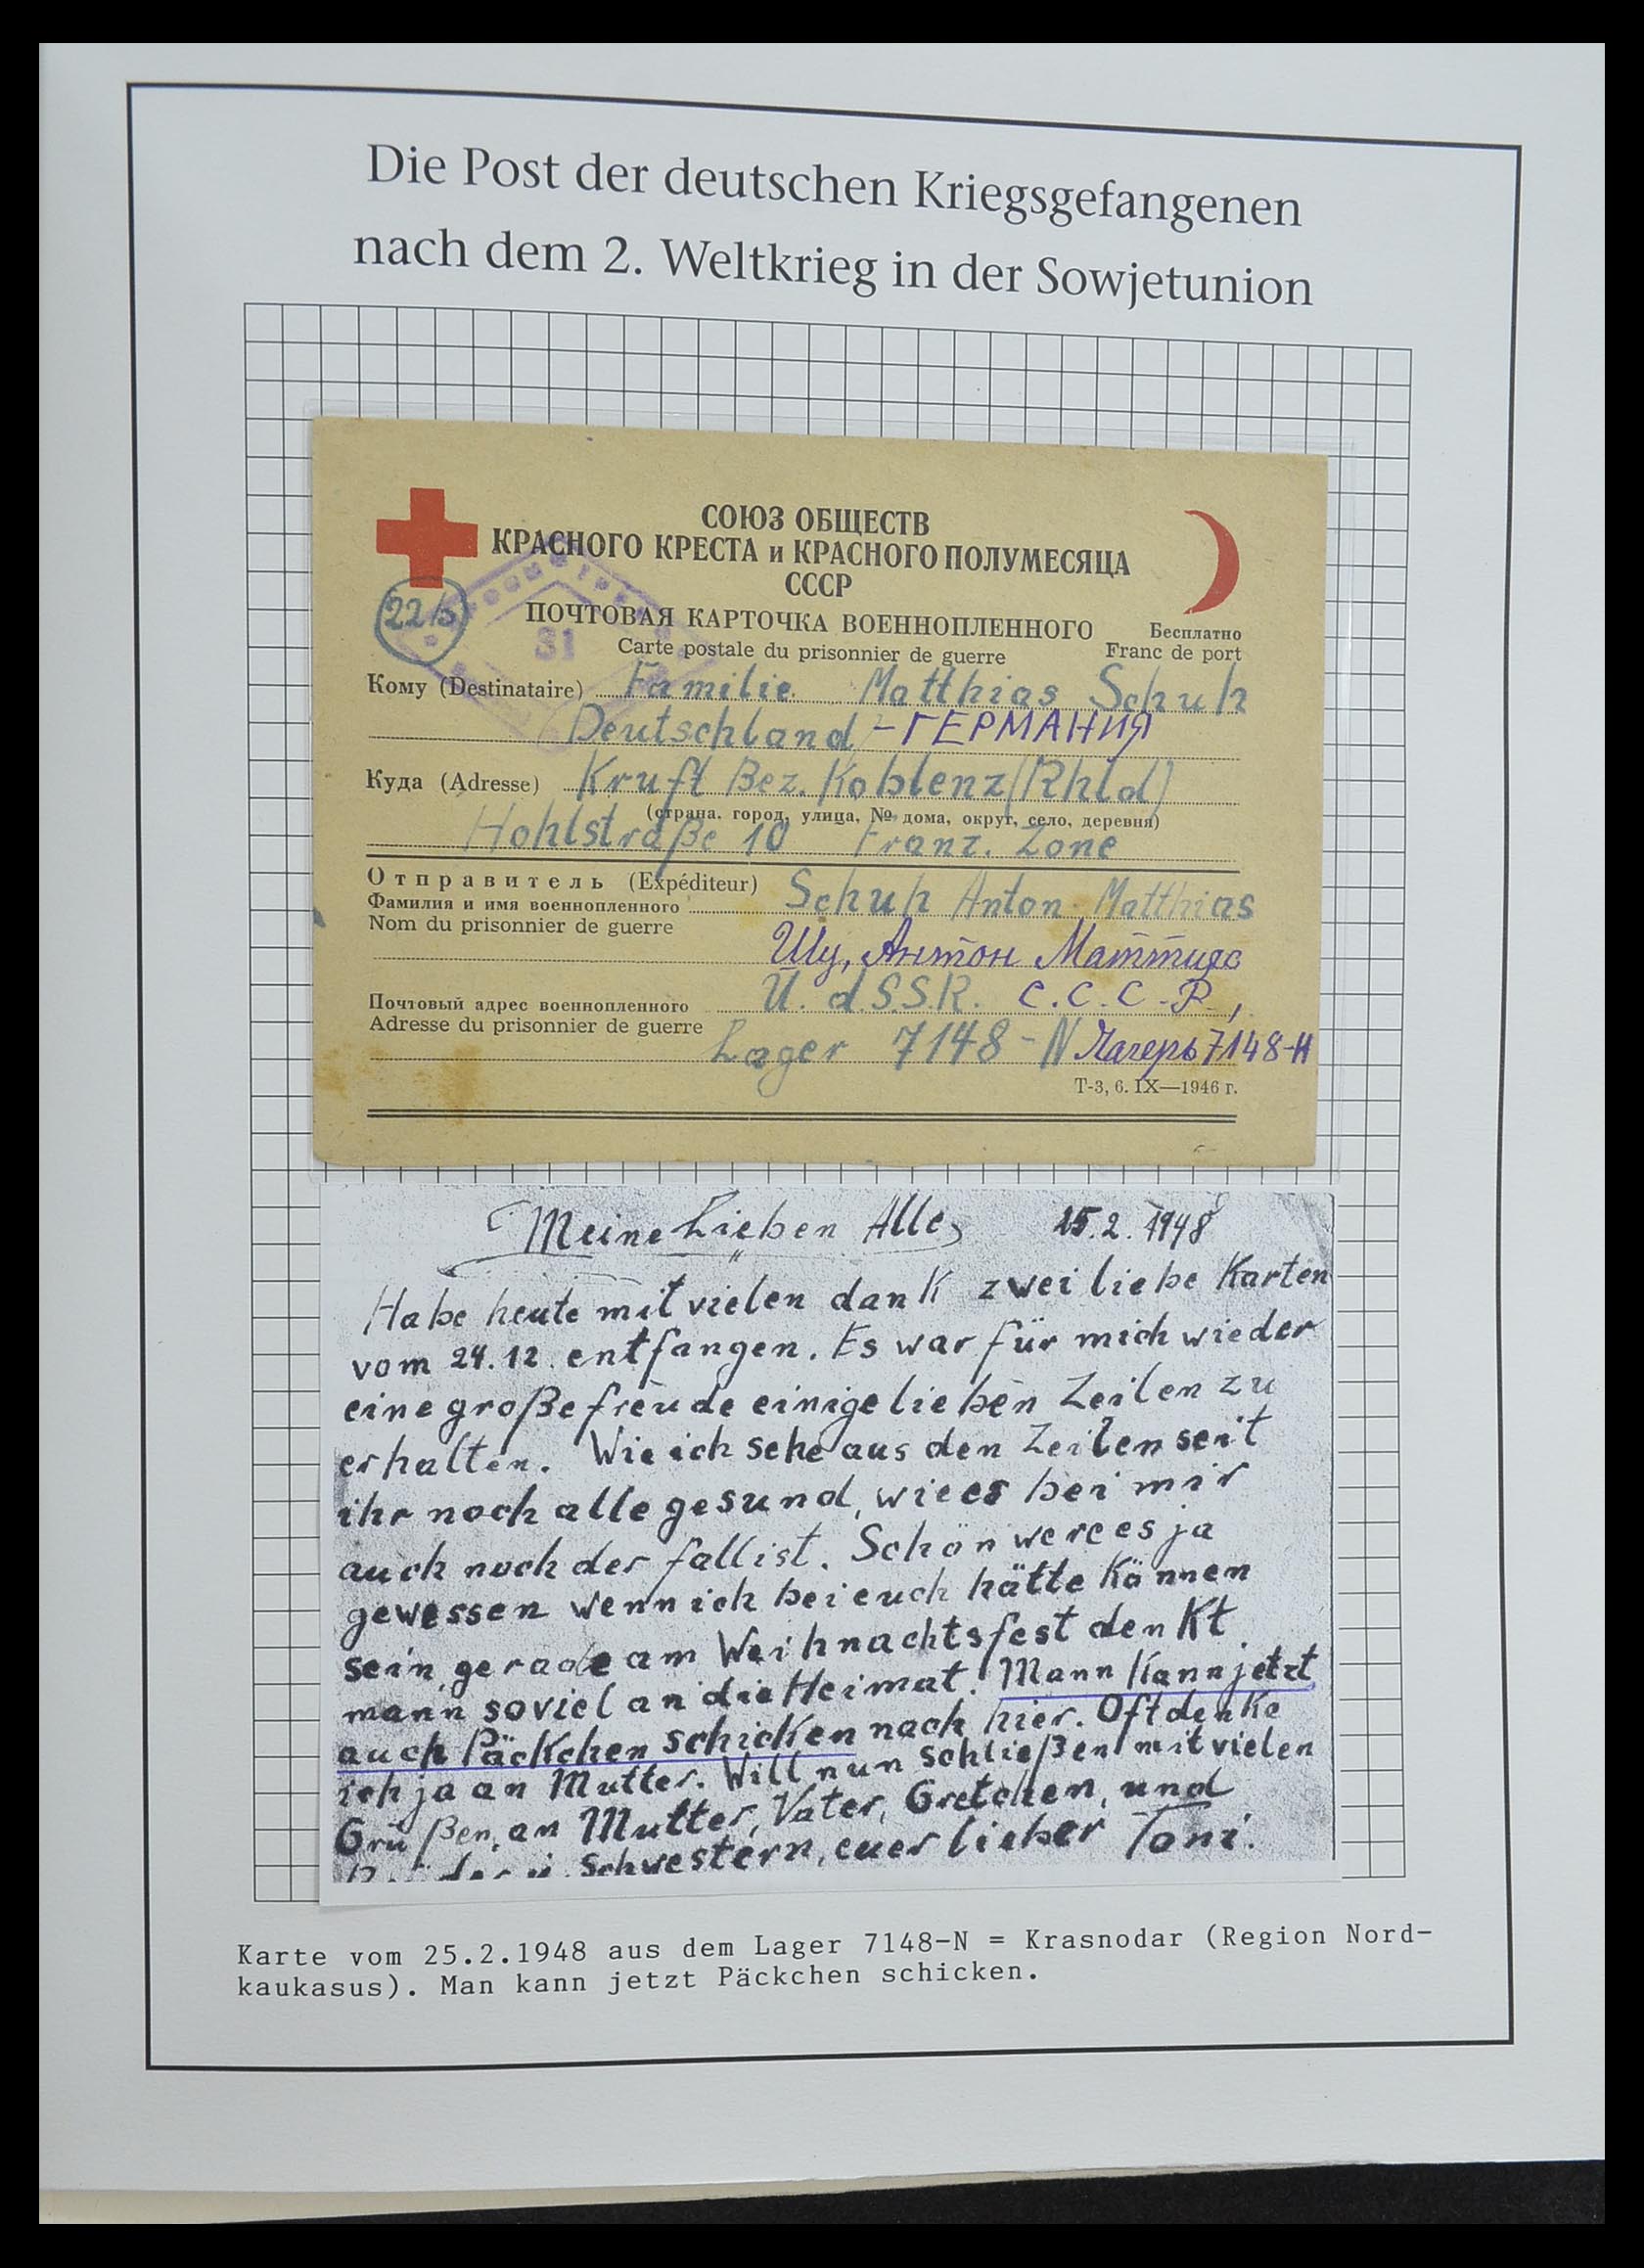 Die Post der deutschen Kriegsgefangenen
nach dem 2. Weltkrieg in der Sowjetunion
СОЮЗ ОБЩЕСТВ
КРАСНОГО КРЕСТА и КРАСНОГО ПОЛУМЕСЯЦА
СССР
22/5
31
ПОЧТОВАЯ КАРТОЧКА ВОЕННОПЛЕННОГО
Carte postale du prisonnier de guerre
Бесплатно
Franc de port
Кому (Destinataire) Familie Matthias Schuh
Deutschland - ГЕРМАНИЯ
Куда (Adresse) Kruft Bez. Koblenz (Rhld)
(страна, город, улица, № дома, округ, село, деревня)
Hohlstraße 10 Franz. Zone
Отправитель (Expéditeur)
Фамилия и имя военнопленного Schuh Anton Matthias
Nom du prisonnier de guerre
Шу, Антон Маттиас
Почтовый адрес военнопленного U. d.S.S.R. С.С.С.Р.,
Adresse du prisonnier de guerre
Lager 7148-N Лагерь 7148-Н
Т-3, 6. IX—1946 г.
Meine Lieben Alle 25.2.1948
Habe heute mit vielen dank zwei liebe Karten
vom 24.12. entfangen. Es war für mich wieder
eine große freude einige lieben Zeilen zu
erhalten. Wie ich sehe aus den Zeilen seit
ihr noch alle gesund, wie es bei mir
auch noch der fall ist. Schön were es ja
gewessen wenn ich bei euch hätte können
sein, gerade am Weihnachtsfest denkt
mann soviel an die Heimat. Mann kann jetzt
auch Päckchen schicken nach hier. Oft denke
ich ja an Mutter. Will nun schließen mit vielen
Grüßen, an Mutter, Vater, Gretchen, und
Schwestern, euer lieber Toni.
Karte vom 25.2.1948 aus dem Lager 7148-N = Krasnodar (Region Nord-
kaukasus). Man kann jetzt Päckchen schicken.